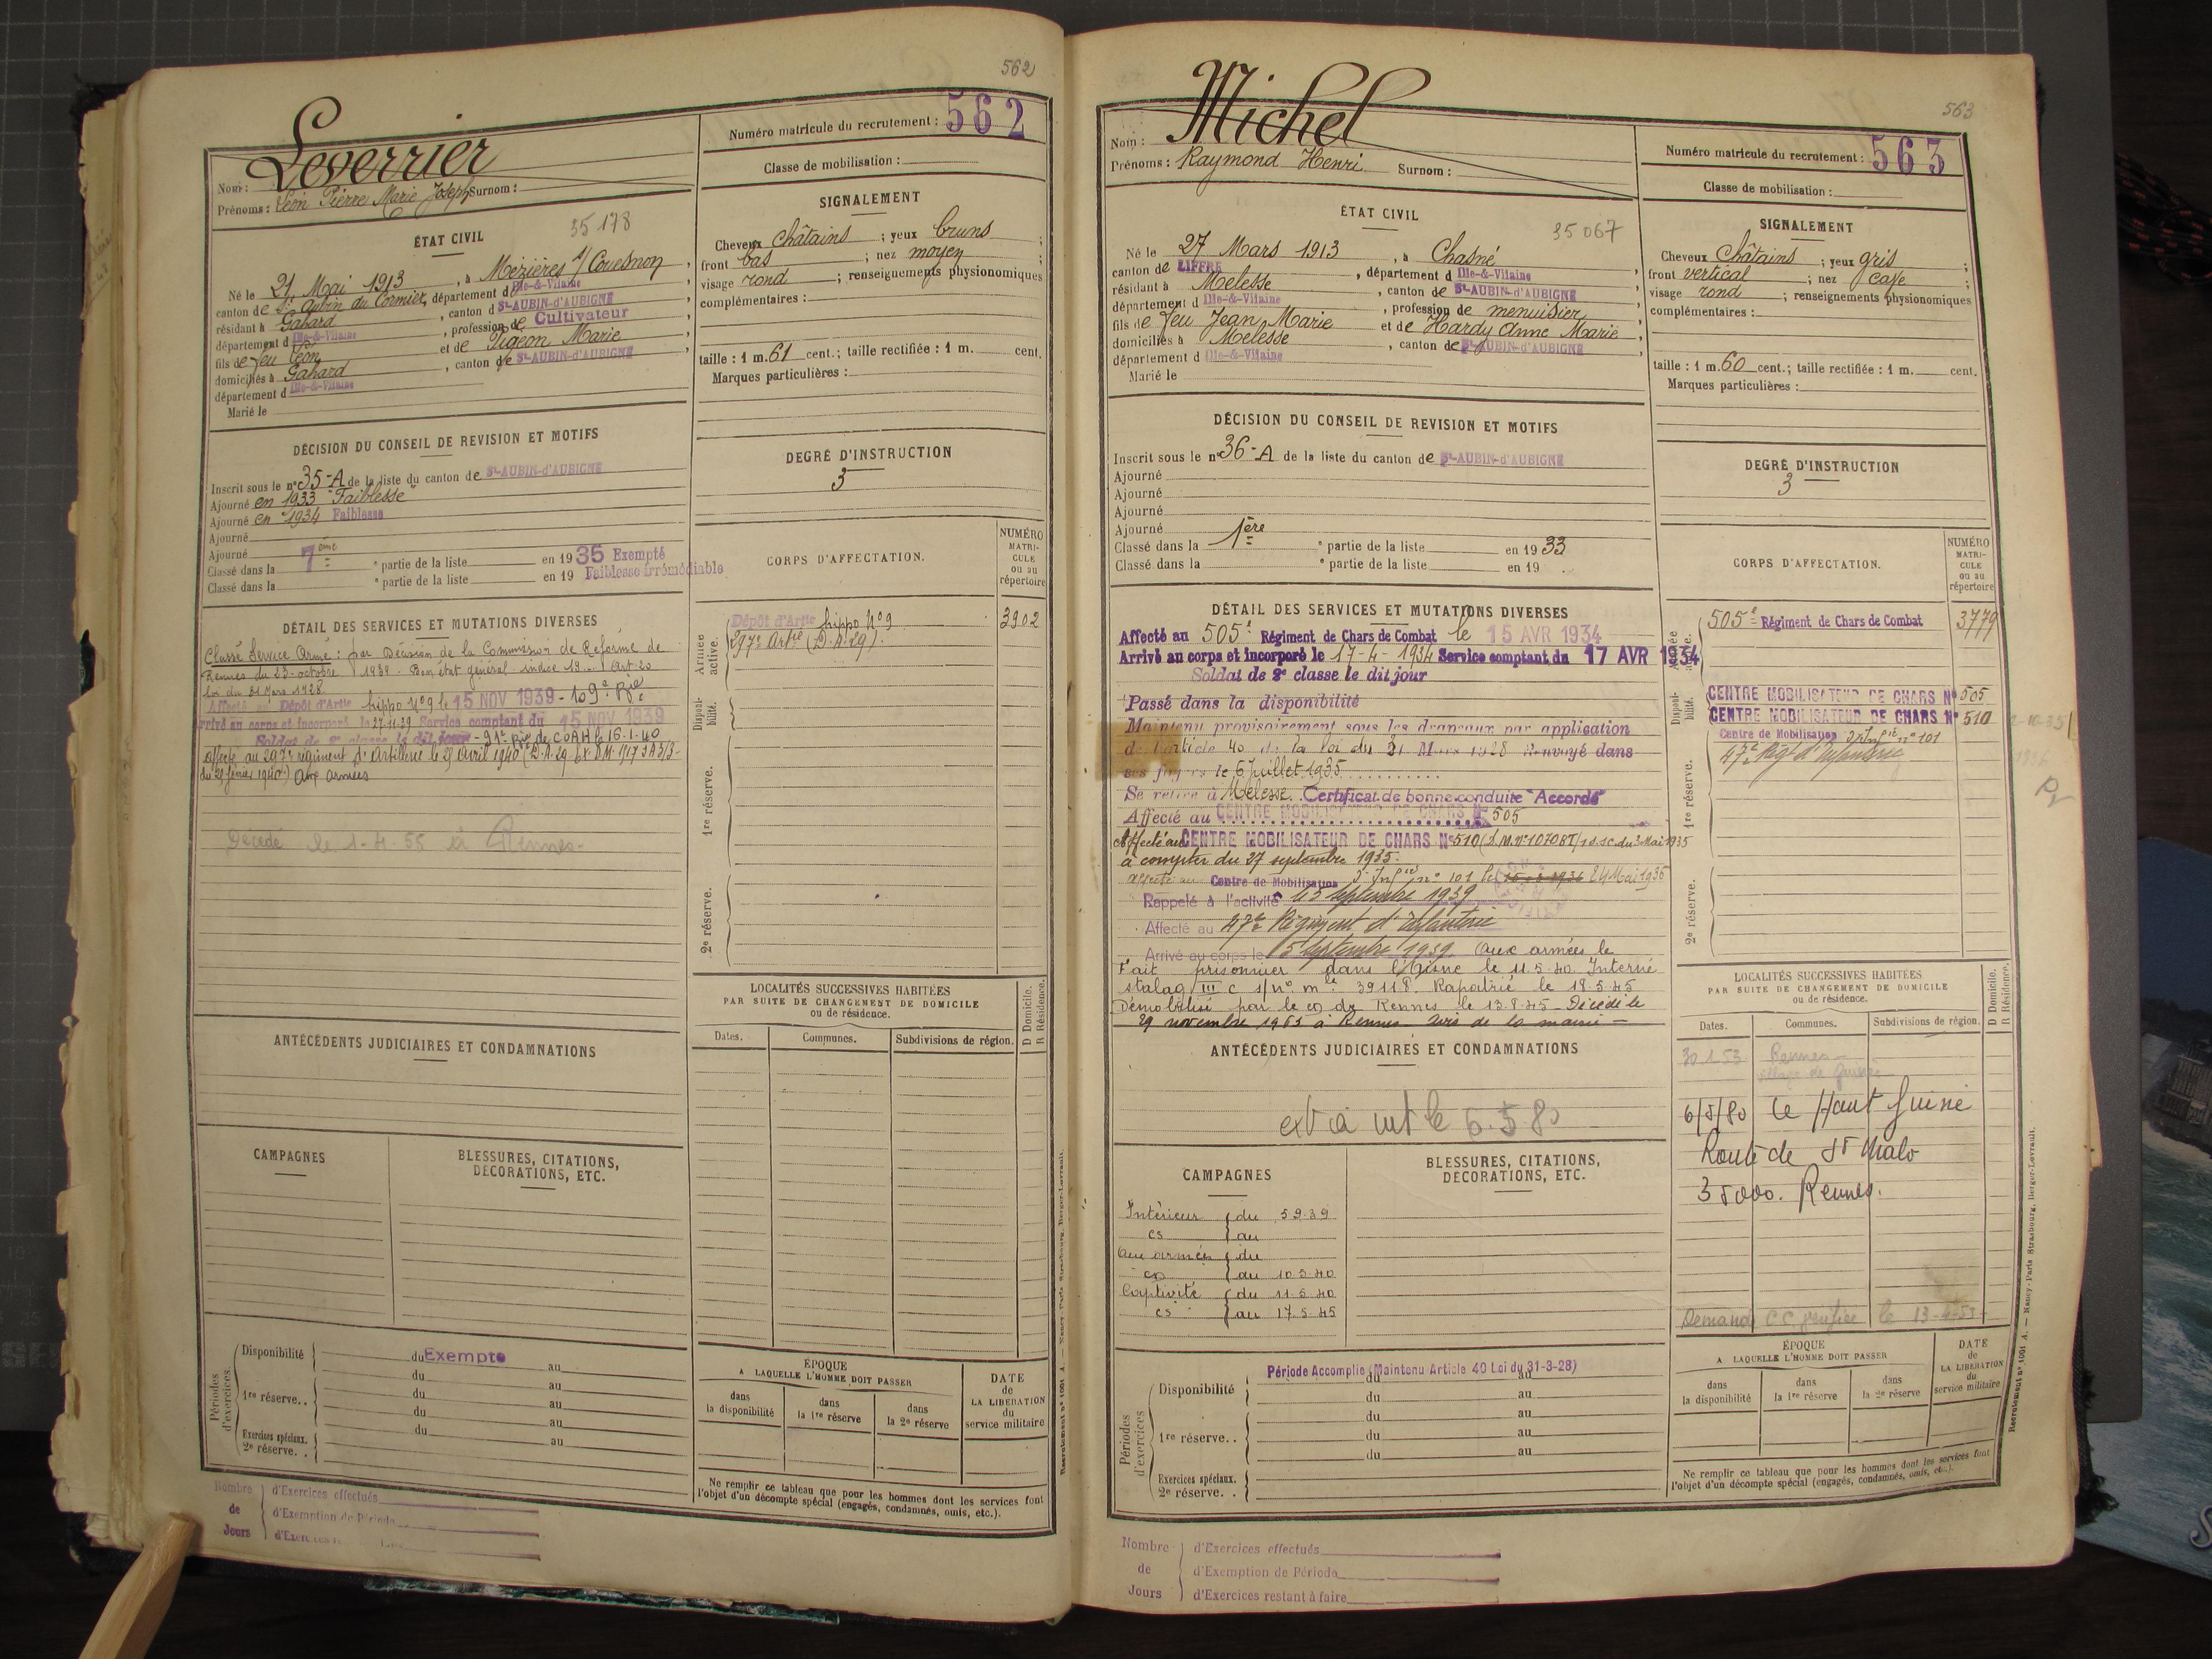 562
Leverrier
Nom :
Prénoms : Léon Pierre Marie Joseph Surnom :
Numéro matricule du recrutement : 562
Classe de mobilisation :
ÉTAT CIVIL
35178
Né le 21 Mai 1913, à Mézières s/ Couesnon,
canton de St Aubin du Cormier, département d Ille-&-Vilaine
résidant à Gahard, canton d St-AUBIN-d'AUBIGNÉ
département d Ille-&-Vilaine, profession de Cultivateur
fils de feu Léon et de Pigeon Marie
domiciliés à Gahard, canton de St-AUBIN-d'AUBIGNÉ
département d Ille-&-Vilaine
Marié le
SIGNALEMENT
Cheveux châtains ; yeux bruns ;
front bas ; nez moyen ;
visage rond ; renseignements physionomiques
complémentaires :
taille : 1 m. 61 cent.; taille rectifiée : 1 m. cent.
Marques particulières :
DÉCISION DU CONSEIL DE REVISION ET MOTIFS
Inscrit sous le n° 35-A de la liste du canton de St-AUBIN-d'AUBIGNÉ
Ajourné en 1933 "Faiblesse"
Ajourné en 1934 Faiblesse
Ajourné
Ajourné
Classé dans la 7ème partie de la liste en 1935 Exempté
Classé dans la ° partie de la liste en 19 Faiblesse irrémédiable
DEGRÉ D'INSTRUCTION
3
CORPS D'AFFECTATION.
NUMÉRO MATRICULE ou au répertoire
DÉTAIL DES SERVICES ET MUTATIONS DIVERSES
Classé Service Armé : par Décision de la Commission de Réforme de
Rennes du 23 octobre 1939 - Bon état général - indice 19 Art. 20
loi du 31 Mars 1928.
Affecté au Dépôt d'Artie hippo N°9 le 15 NOV 1939 - 109e Bie
Arrivé au corps et incorporé le 27-11-39 Service comptant du 15 NOV 1939
Soldat de 2e classe le dit jour - 91e Bie de COAH le 16-1-40
Affecté au 297e régiment d'Artillerie le 21 Avril 1940
aux armées
Décédé le 1-4-55 à Rennes.
Armée active.
Dépôt d'Artie hippo N°9 3902
297e Artie (D.A. 29)
Disponibilité.
1re réserve.
2e réserve.
LOCALITÉS SUCCESSIVES HABITÉES
PAR SUITE DE CHANGEMENT DE DOMICILE
ou de résidence.
D Domicile.
R Résidence.
Dates. Communes. Subdivisions de région.
ANTÉCÉDENTS JUDICIAIRES ET CONDAMNATIONS
CAMPAGNES
BLESSURES, CITATIONS,
DÉCORATIONS, ETC.
Périodes d'exercices
Disponibilité du Exempté au
du au
1re réserve.. du au
du au
Exercices spéciaux. du au
2e réserve. .
ÉPOQUE
A LAQUELLE L'HOMME DOIT PASSER
dans la disponibilité
dans la 1re réserve
dans la 2e réserve
DATE de LA LIBÉRATION du service militaire
Ne remplir ce tableau que pour les hommes dont les services font
l'objet d'un décompte spécial (engagés, condamnés, omis, etc.).
Nombre de Jours
d'Exercices effectués
d'Exemption de Période
d'Exercices
Recrutement n° 1001 A. — Nancy - Paris Strasbourg, Berger-Levrault.
563
Michel
Nom :
Prénoms : Raymond Henri Surnom :
Numéro matricule du recrutement : 563
Classe de mobilisation :
ÉTAT CIVIL
35067
Né le 27 Mars 1913, à Chasné,
canton de LIFFRÉ, département d Ille-&-Vilaine
résidant à Melesse, canton de St-AUBIN-d'AUBIGNÉ
département d Ille-&-Vilaine, profession de menuisier
fils de feu Jean Marie et de Hardy Anne Marie
domiciliés à Melesse, canton de St-AUBIN-d'AUBIGNÉ
département d Ille-&-Vilaine
Marié le
SIGNALEMENT
Cheveux châtains ; yeux gris ;
front vertical ; nez cave ;
visage rond ; renseignements physionomiques
complémentaires :
taille : 1 m. 60 cent.; taille rectifiée : 1 m. cent.
Marques particulières :
DÉCISION DU CONSEIL DE REVISION ET MOTIFS
Inscrit sous le n° 36-A de la liste du canton de St-AUBIN-d'AUBIGNÉ
Ajourné
Ajourné
Ajourné
Ajourné
Classé dans la 1ère ° partie de la liste en 1933
Classé dans la ° partie de la liste en 19
DEGRÉ D'INSTRUCTION
3
CORPS D'AFFECTATION.
NUMÉRO MATRICULE ou au répertoire
DÉTAIL DES SERVICES ET MUTATIONS DIVERSES
Affecté au 505e Régiment de Chars de Combat le 15 AVR 1934
Arrivé au corps et incorporé le 17-4-1934 Service comptant du 17 AVR 1934
Soldat de 2e classe le dit jour
Passé dans la disponibilité
Maintenu provisoirement sous les drapeaux par application
de l'article 40 de la loi du 31 Mars 1928 Renvoyé dans
ses foyers le 6 Juillet 1935
Se retire à Melesse. Certificat de bonne conduite "Accordé"
Affecté au CENTRE MOBILISATEUR DE CHARS N° 505
Affecté au CENTRE MOBILISATEUR DE CHARS N° 510 (D.M. n° 1070 BT/1 d.s.c. du 3 Mai 1935
à compter du 27 septembre 1935.
Affecté au Centre de Mobilisation d'Infie n° 101 le 24 Mai 1936
Rappelé à l'activité le 5 septembre 1939
Affecté au 47e Régiment d'Infanterie
Arrivé au corps le 5 septembre 1939. Aux armées le
Fait prisonnier dans l'Aisne le 11.5.40 Interné
stalag III c s/n° mle 39118. Rapatrié le 18.5.45
Démobilisé par le cd de Rennes le 13.8.45 - Décédé le
29 novembre 1985 à Rennes avis de la mairie -
Armée active.
505e Régiment de Chars de Combat 3779
Disponibilité.
CENTRE MOBILISATEUR DE CHARS N° 505
CENTRE MOBILISATEUR DE CHARS N° 510
Centre de Mobilisation d'Infie n° 101
47e Régt d'Infanterie
1re réserve.
2e réserve.
LOCALITÉS SUCCESSIVES HABITÉES
PAR SUITE DE CHANGEMENT DE DOMICILE
ou de résidence.
D Domicile.
R Résidence.
Dates. Communes. Subdivisions de région.
30.1.53 Rennes
6/5/80 Le Haut Quiné
Route de St Malo
35000. Rennes.
Demande C.C. le 13
ANTÉCÉDENTS JUDICIAIRES ET CONDAMNATIONS
le 6.5.80
CAMPAGNES
BLESSURES, CITATIONS,
DÉCORATIONS, ETC.
Intérieur du 5.9.39
cs au
Aux armées du
cs du 10.5.40
Captivité du 11.5.40
cs au 17.5.45
Périodes d'exercices
Période Accomplie (Maintenu Article 40 Loi du 31-3-28)
Disponibilité du au
du au
1re réserve.. du au
du au
du au
Exercices spéciaux.
2e réserve. .
ÉPOQUE
A LAQUELLE L'HOMME DOIT PASSER
dans la disponibilité
dans la 1re réserve
dans la 2e réserve
DATE de LA LIBÉRATION du service militaire
Ne remplir ce tableau que pour les hommes dont les services font
l'objet d'un décompte spécial (engagés, condamnés, omis, etc.).
Nombre de Jours
d'Exercices effectués
d'Exemption de Période
d'Exercices restant à faire
Recrutement n° 1001 A. — Nancy - Paris Strasbourg, Berger-Levrault.